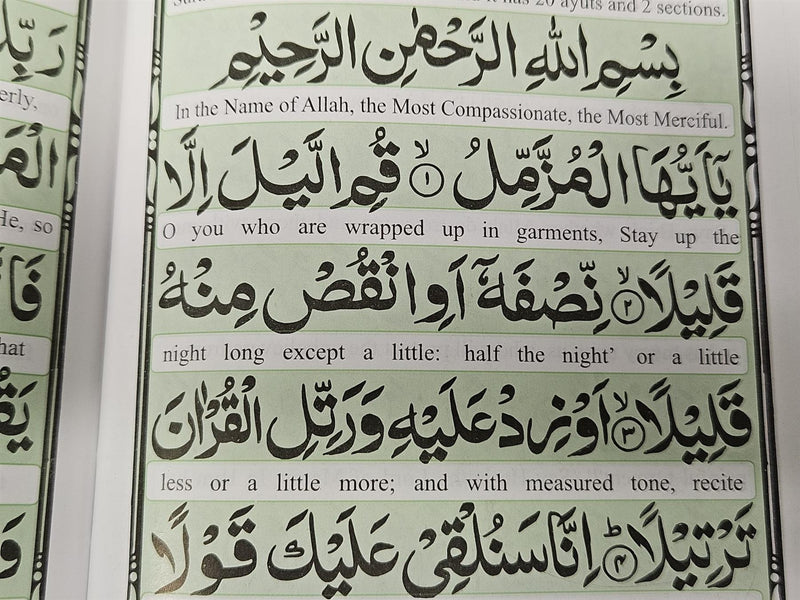 it has 20 ayuts and 2 sections.
بِسْمِ اللّٰهِ الرَّحْمٰنِ الرَّحِيْمِ
In the Name of Allah, the Most Compassionate, the Most Merciful.
يٰۤاَيُّهَا الْمُزَّمِّلُ ۙ۱ قُمِ الَّيْلَ اِلَّا
O you who are wrapped up in garments, Stay up the
قَلِيْلًا ۙ۲ نِّصْفَهٗۤ اَوِ انْقُصْ مِنْهُ
night long except a little: half the night’ or a little
قَلِيْلًا ۙ۳ اَوْ زِدْ عَلَيْهِ وَرَتِّلِ الْقُرْاٰنَ
less or a little more; and with measured tone, recite
تَرْتِيْلًا ؕ۴ اِنَّا سَنُلْقِيْ عَلَيْكَ قَوْلًا
erly,
He, so
hat